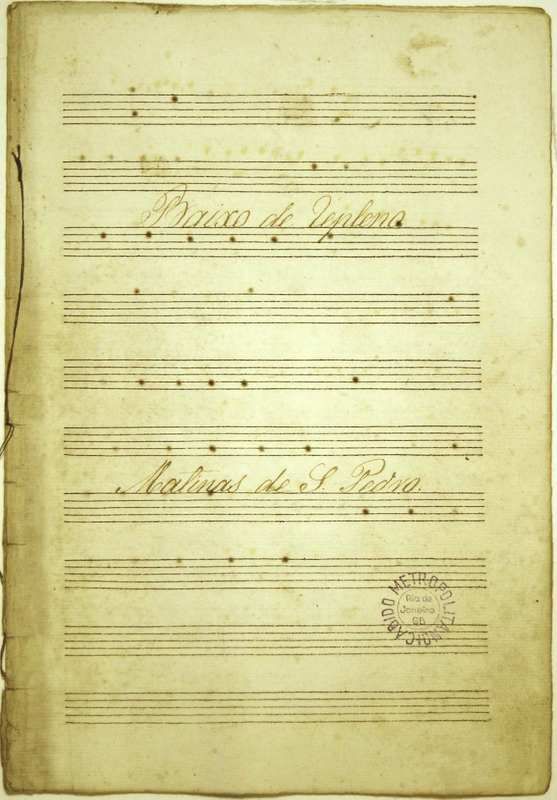 Baixo de Repleno
Matinas de S. Pedro.
CABIDO METROPOLITANO
Rio de
Janeiro
GB